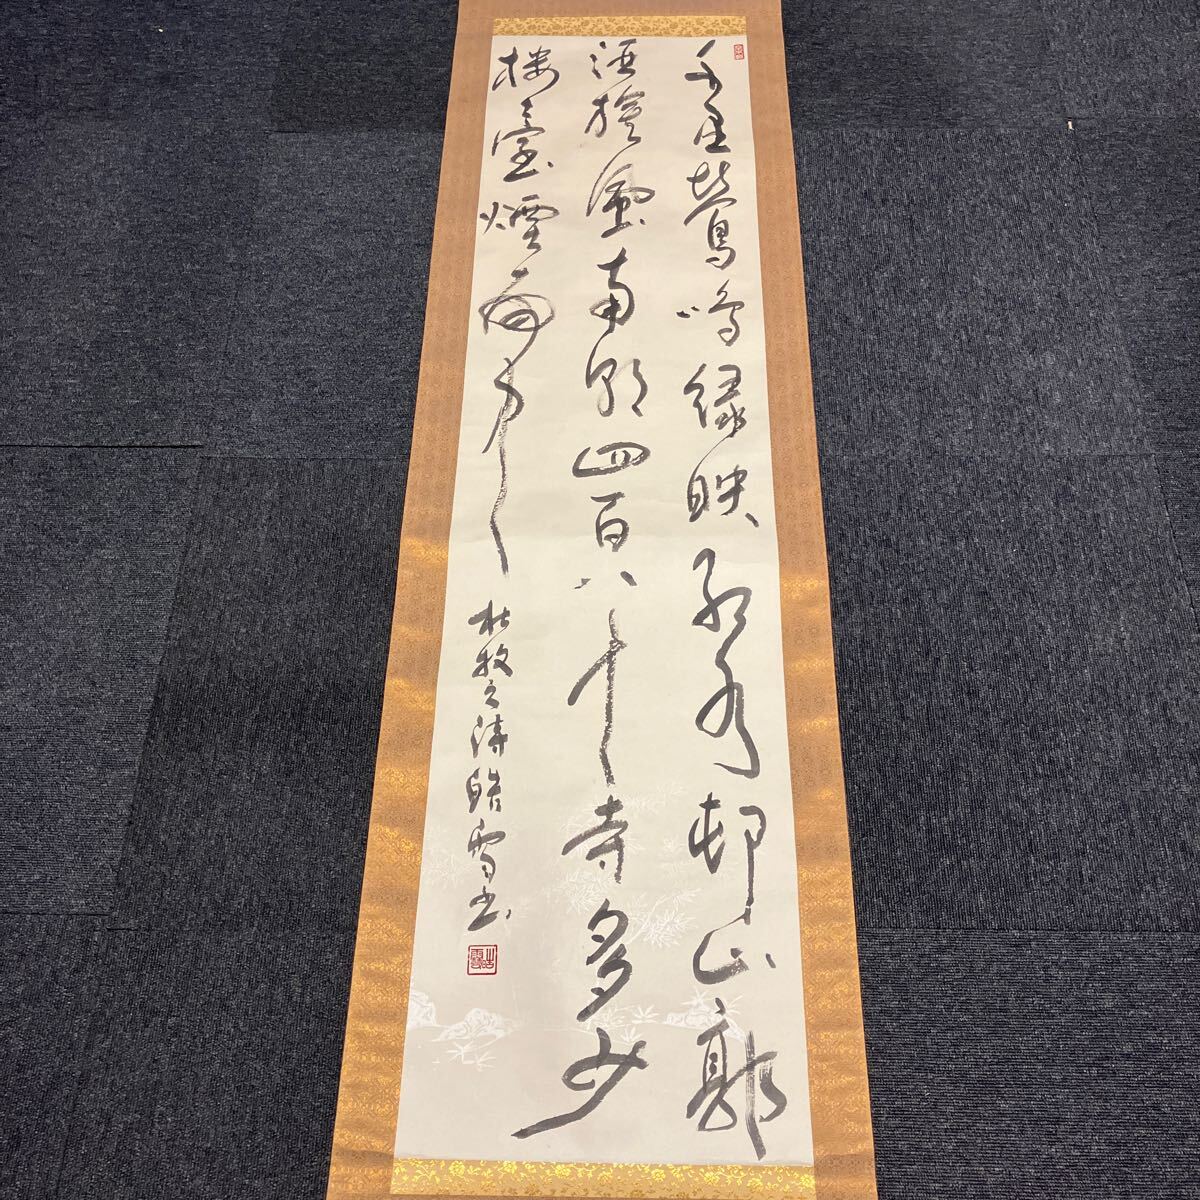 千里鶯鳴緑映紅水邨山郭
酒旗風南朝四百八十寺多少
楼臺煙雨中
杜牧之詩皓雪書